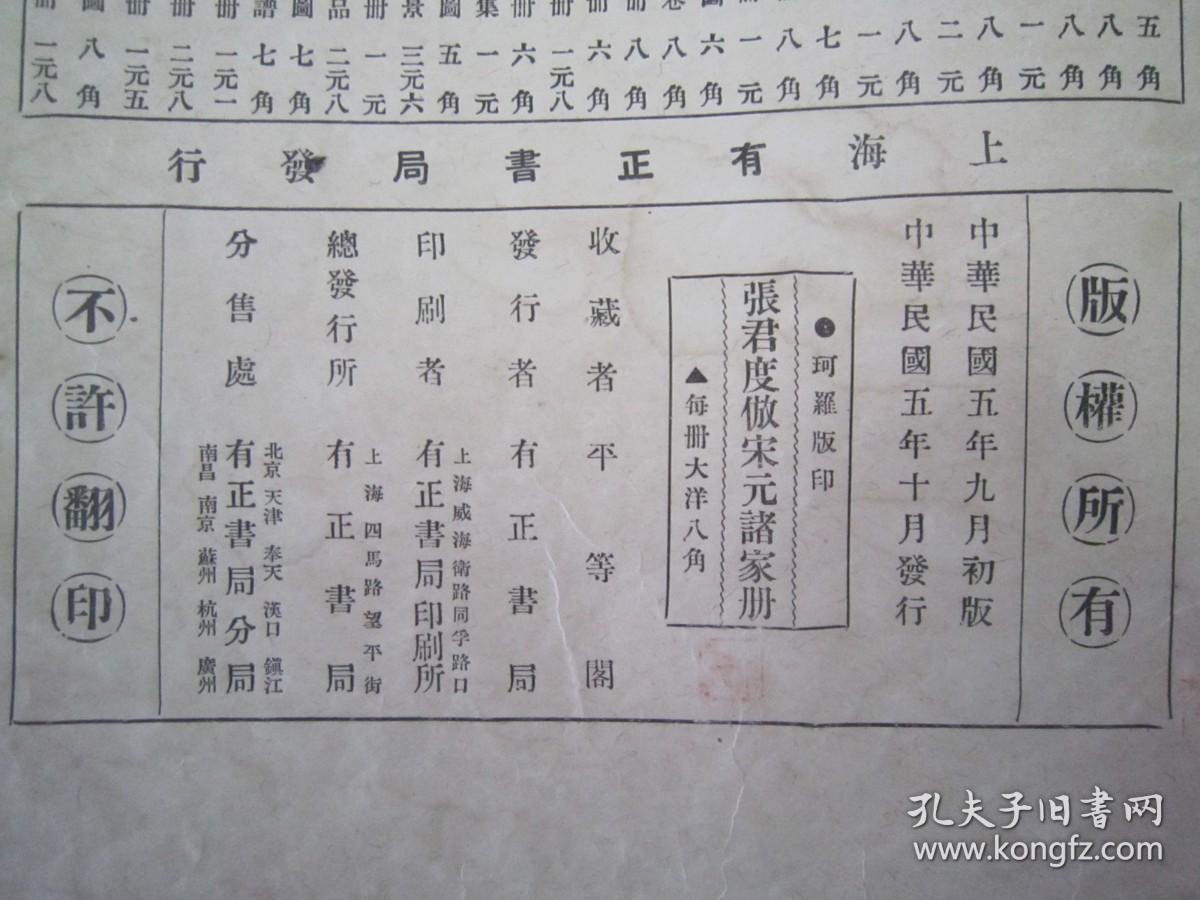 五角
八角
八角
一元
八角
二元
八角
一元
七角
八角
一元
六角
卷 八角
册 八角
册 六角
册 一元八
册 六角
集 一元
圖 五角
景 三元六
册 一元
品 二元八
圖 七角
譜 七角
册 一元一
册 二元八
册 一元五
圖 八角
册 一元八
上海有正書局發行
版權所有
中華民國五年九月初版
中華民國五年十月發行
●珂羅版印
張君度倣宋元諸家册
▲每册大洋八角
收藏者 平等閣
發行者 有正書局
印刷者 上海威海衛路同孚路口
有正書局印刷所
總發行所 上海四馬路望平街
有正書局
分售處 北京 天津 奉天 漢口 鎮江
有正書局分局
南昌 南京 蘇州 杭州 廣州
不許翻印
孔夫子旧书网
www.kongfz.com